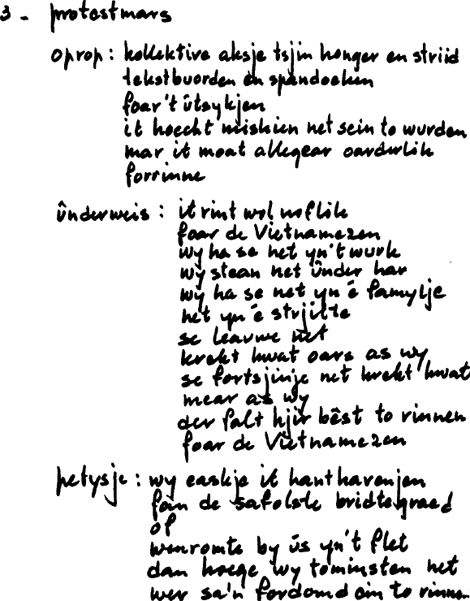 3 - protestmars
oprop: kollektive aksje tsjin honger en striid
tekstbuorden en spandoeken
foar't útsykjen
it hoecht miskien net sein to wurden
mar it moat allegear oarderlik
forrinne
ûnderweis: it rint wol noflik
foar de Vietnamezen
wy ha se net yn't wurk
wy stean net ûnder har
wy ha se net yn 'e famylje
net yn 'e strjitte
se leauwe net
krekt hwat oars as wy
se fortsjinje net krekt hwat
mear as wy
der falt hjir bêst to rinnen
foar de Vietnamezen
petysje: wy easkje it hanthavenjen
fan de safolste bridtegraed
of
wenromte by ús yn't flet
dan hoege wy tominsten net
wer sa'n fordomd ein to rinnen